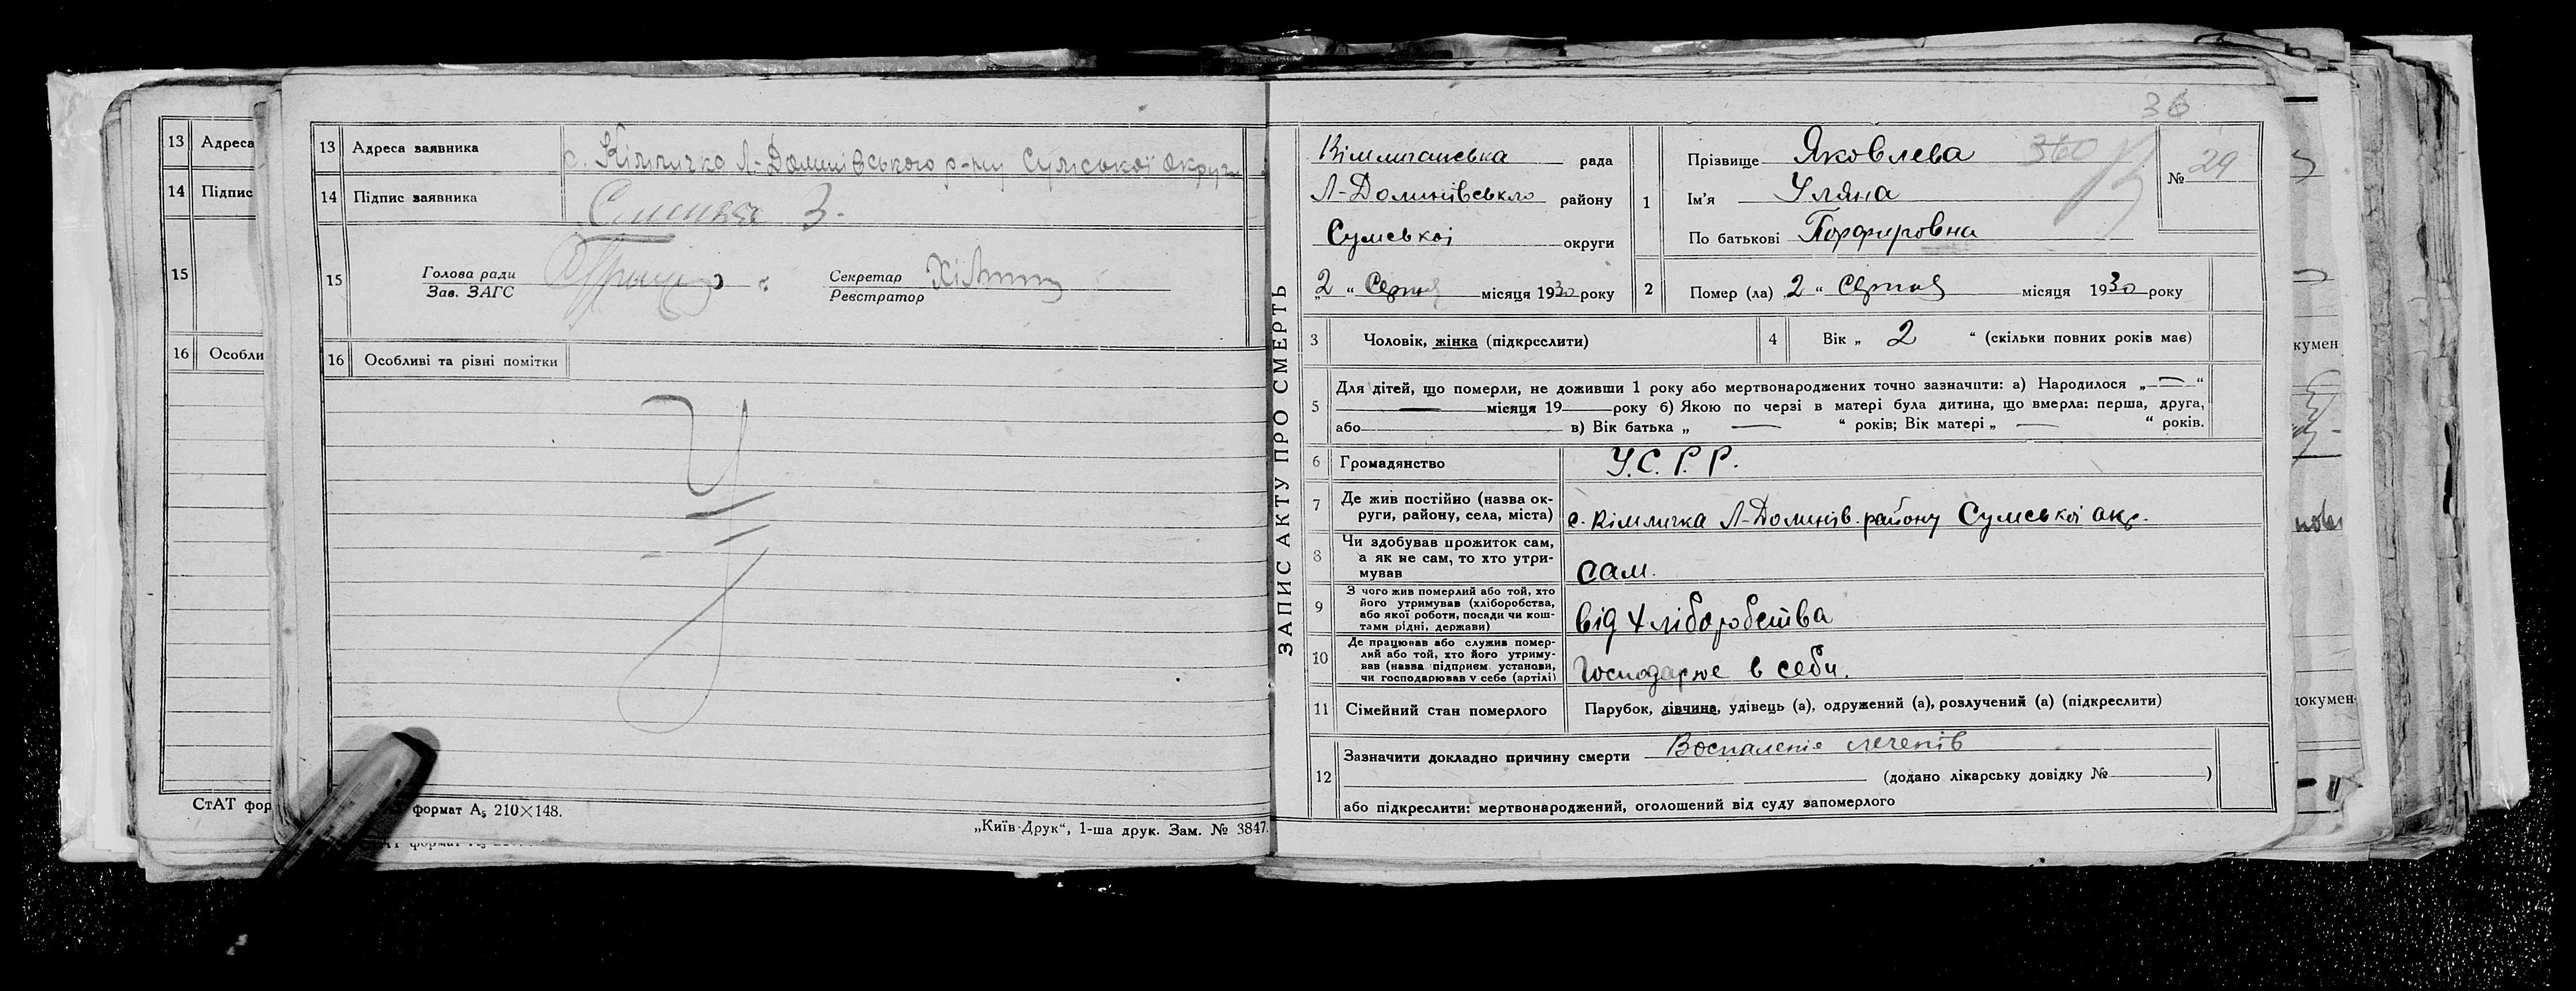 13 Адреса
14 Підпис
15
16 Особли
СтАТ фор
13 Адреса заявника с. Кімличка Л-Долинівського р-ну Сумської округи
14 Підпис заявника
15 Голова ради
Зав. ЗАГС
Секретар
Реєстратор
16 Особливі та різні помітки
формат А₅ 210×148.
„Київ-Друк“, 1-ша друк. Зам. № 3847.
ЗАПИС АКТУ ПРО СМЕРТЬ
36
Кімличанська рада
Л-Долинівського району
Сумської округи
„2“ Серпня місяця 1930 року
1 Прізвище Яковлева 360
Ім'я Уляна
По батькові Порфировна
№ 29
2 Помер (ла) „2“ Серпня місяця 1930 року
3 Чоловік, жінка (підкреслити)
4 Вік „ 2 “ (скільки повних років має)
5 Для дітей, що померли, не доживши 1 року або мертвонароджених точно зазначити: а) Народилося „—“
— місяця 19 року б) Якою по черзі в матері була дитина, що вмерла: перша, друга,
або в) Вік батька „ — “ років; Вік матері „ — “ років.
6 Громадянство У.С.Р.Р.
7 Де жив постійно (назва ок-
руги, району, села, міста) с. Кімличка Л-Долинів. району Сумської окр.
8 Чи здобував прожиток сам,
а як не сам, то хто утри-
мував сам.
9 З чого жив померлий або той, хто
його утримував (хліборобства,
або якої роботи, посади чи кош-
тами рідні, держави) від хліборобства
10 Де працював або служив помер-
лий або той, хто його утриму-
вав (назва підприєм. установи,
чи господарював у себе (артілі) Господарює в себи.
11 Сімейний стан померлого Парубок, дівчина, удівець (а), одружений (а), розлучений (а) (підкреслити)
12 Зазначити докладно причину смерти Воспаленіе
(додано лікарську довідку № )
або підкреслити: мертвонароджений, оголошений від суду запомерлого
кумен
докумен